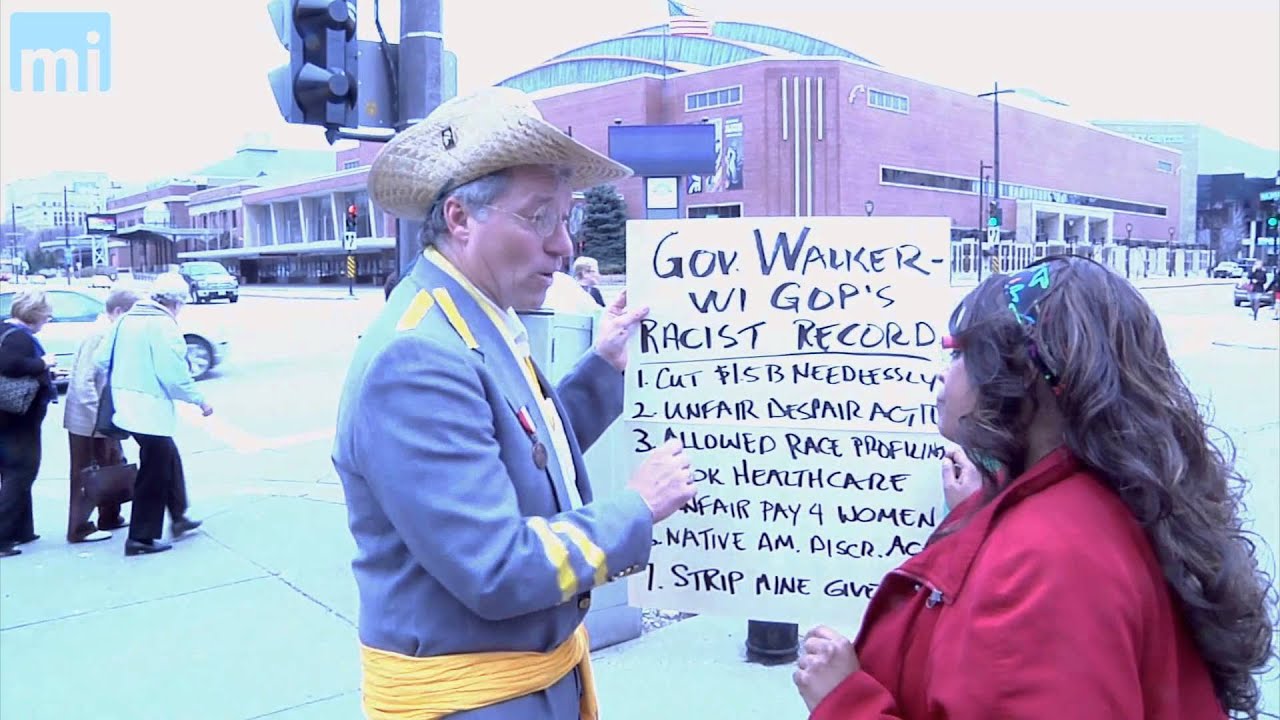 mi
GOV. WALKER-
WI GOP'S
RACIST RECORD
1. CUT $1.5B NEEDLESSLY
2. UNFAIR DESPAIR ACT
3. ALLOWED RACE PROFILING
HEALTHCARE
UNFAIR PAY 4 WOMEN
NATIVE AM. DISCR. AC
7. STRIP MINE GIVE